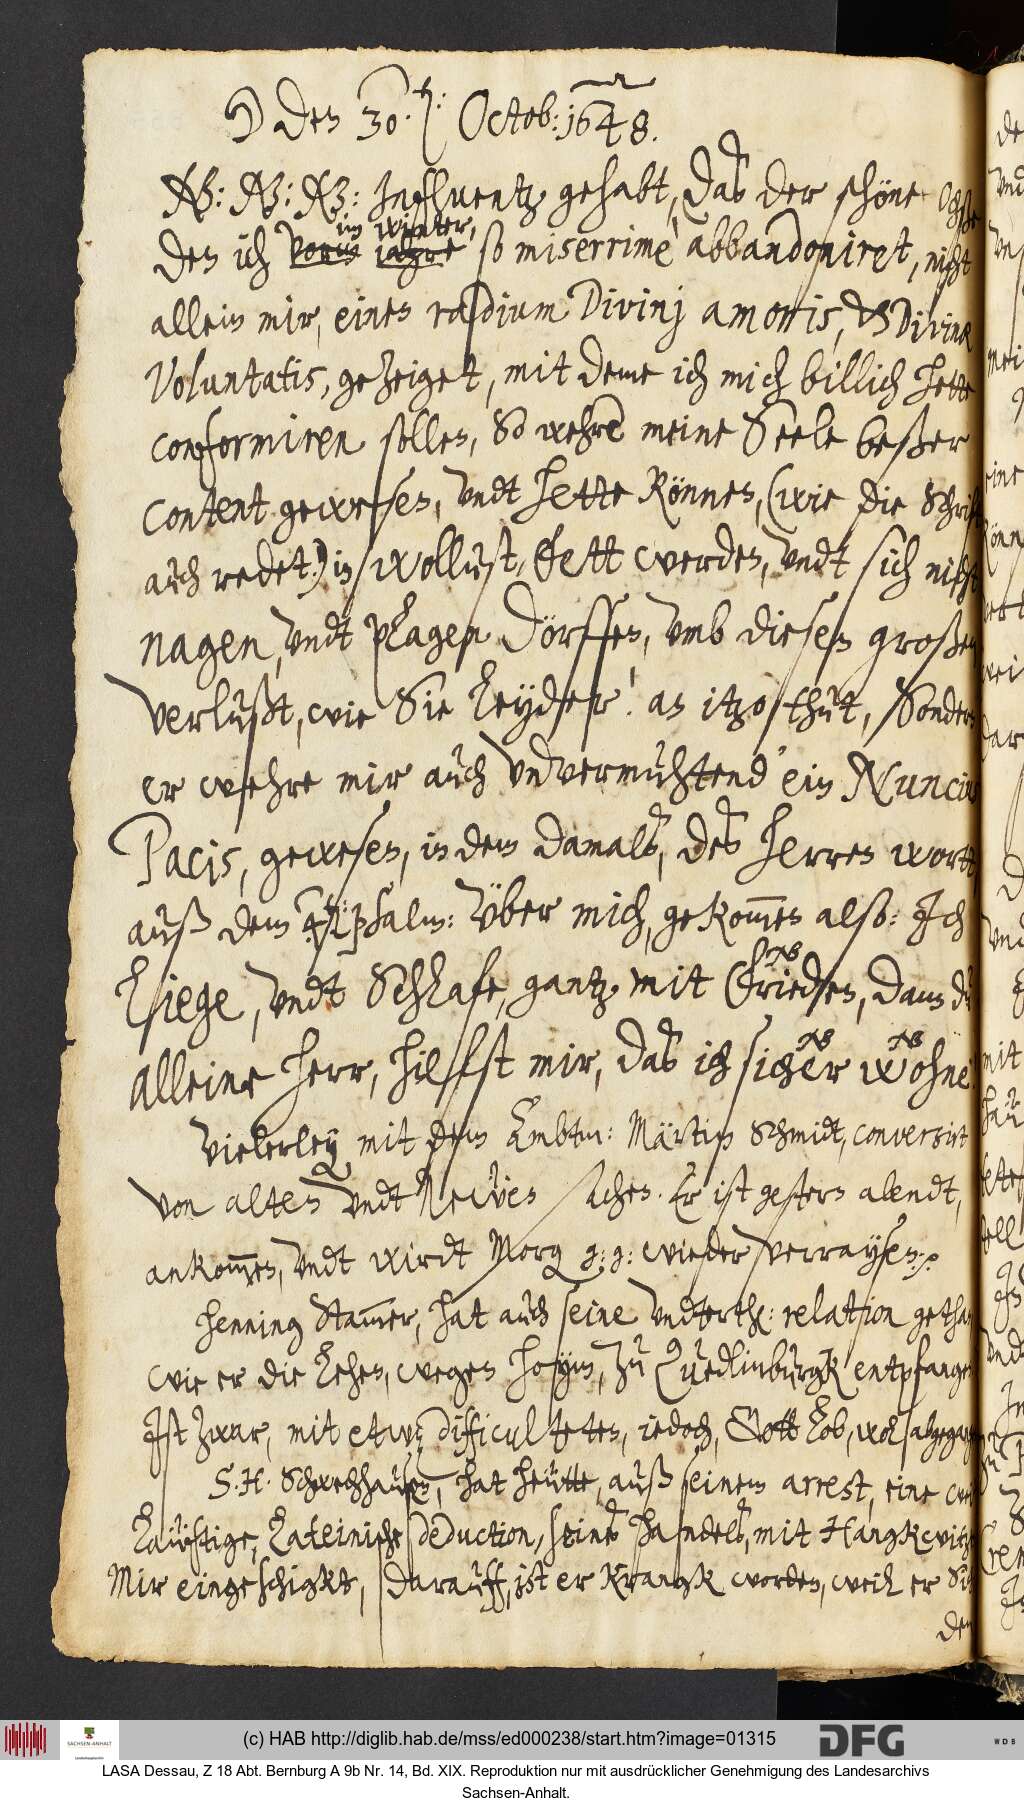 ☽ den 30. t: Octob: 1648.
NB: NB: NB: Influentz gehabt, das der schöne Ochße
im winter,
den ich vorm iahre so miserrimè abbandoniret, nicht
allein mir, einen radium Divinj amoris, & Divinæ
Voluntatis, gezeiget, mit deme ich mich billich hette
conformiren sollen, So wehre meine Seele beßer
content gewesen, undt hette können, (wie die Schrift
auch redet) in wollust, fett werden, undt sich nicht
nagen, undt plagen dörffen, umb diesen großen
verlußt, wie Sie leyder! an itzo thut, Sondern
er wehre mir auch unvermuhtend ein Nuncius
Pacis, gewesen, in dem damals, des Herren wortt,
auß dem 4. psalm: über mich, gekommen also: Ich
liege, undt Schlafe, gantz mit Frieden, dann du
NB
alleine Herr, hilfst mir, das ich sicher wohne
NB NB
Vielerley mit dem Ambtm: Märtin Schmidt, conversirt
von alten undt Neẅen sachen. Er ist gestern abendt,
ankommen, undt wirdt Morg g: g: wieder verraysen.
Henning Stammer, hat auch seine underth: relation gethan
wie er die Lehen, wegen Hoym, zu Quedlinburgk entpfangen
Ist zwar, mit etwas difficulteten, iedoch, Gott lob, wol abgegangen
S. H. Schwechhausen, hat heütte, auß seinem arrest, eine weit
laüftige, Lateinische deduction, seines handels, mit Hangkwitzen
Mir eingeschigkt, darauff, ist er Krangk worden, weil er Sich
den
(c) HAB http://diglib.hab.de/mss/ed000238/start.htm?image=01315
DFG
WDB
SACHSEN-ANHALT
LASA Dessau, Z 18 Abt. Bernburg A 9b Nr. 14, Bd. XIX. Reproduktion nur mit ausdrücklicher Genehmigung des Landesarchivs
Sachsen-Anhalt.